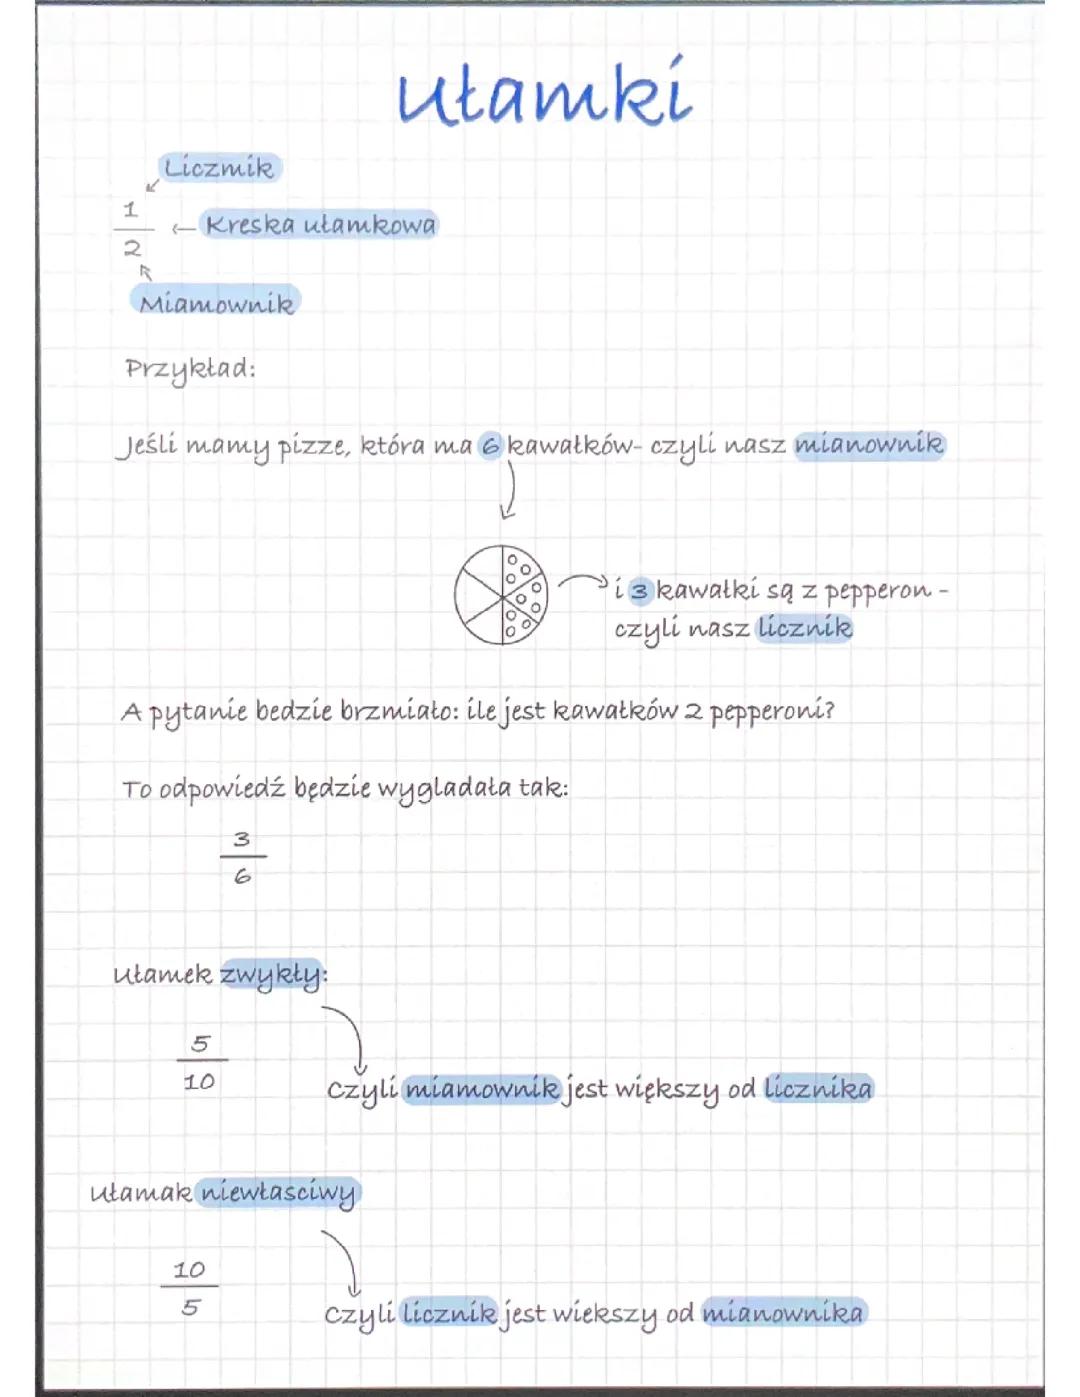 Ułamki
Liczmik
1
Kreska ułamkowa
2
Miamownik
Przykład:
Jeśli mamy pizze, która ma 6 kawałków- czyli nasz mianownik
i 3 kawałki są z pepperon -
czyli nasz licznik
A pytanie bedzie brzmiało: ile jest kawałków 2 pepperoni?
To odpowiedź będzie wygladała tak:
3
6
Ułamek zwykły:
5
10
Czyli miamownik jest większy od licznika
Ułamak niewłasciwy
10
5
Czyli licznik jest wiekszy od mianownika